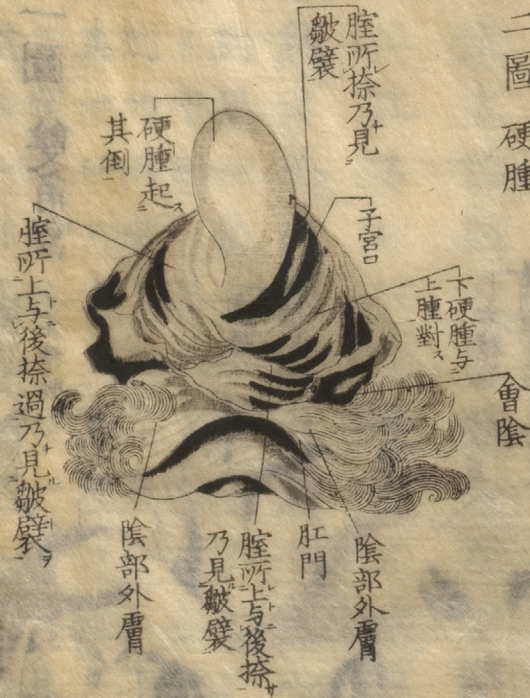 二圖 硬腫
膣所捺乃見
皺襞
子宮口
下硬腫与
上腫對ス
會陰
硬腫起
其倒
膣所上与後捺過乃見皺襞
陰部外膚
肛門
膣所上与後捺
乃見皺襞
陰部外膚